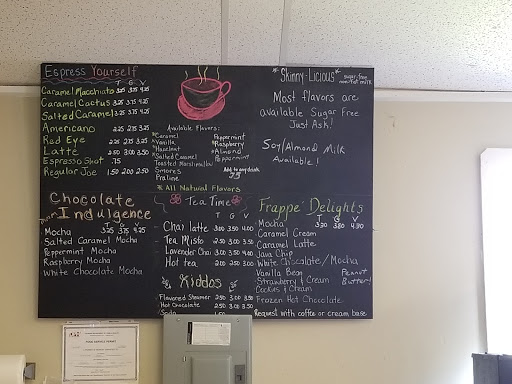 Espress Yourself
T G V
Caramel Macchiato 3.25 3.75 4.25
Caramel Cactus 3.25 3.75 4.25
Salted Caramel 3.25 3.75 4.25
Americano 2.25 2.75 3.25
Red Eye 2.25 2.75 3.25
Latte 2.50 3.00 3.50
Espresso Shot .75
Regular Joe 1.50 2.00 2.50
Available Flavors:
*Caramel
*Vanilla
*Hazelnut
*Salted Caramel
Toasted Marshmallow
Smores
Praline
Peppermint
*Raspberry
*Almond
Add to any drink
* All Natural Flavors
*Skinny-Licious*
sugar-free
non-fat milk
Most flavors are
available Sugar Free
Just Ask!
Soy/Almond Milk
Available!
Chocolate
Indulgence
T G V
Mocha 3.25 3.75 4.25
Salted Caramel Mocha
Peppermint Mocha
Raspberry Mocha
White Chocolate Mocha
Tea Time
T G V
Chai latte 3.00 3.50 4.00
Tea Misto 2.50 3.00 3.50
Lavender Chai 3.00 3.50 4.00
Hot tea 2.00 2.50 3.00
Kiddos
Flavored Steamer 2.50 3.00 3.50
Hot Chocolate 2.50 3.00 3.50
Soda 1.50
Frappe' Delights
T G V
Mocha 3.20 3.80 4.30
Caramel Cream
Caramel Latte
Java Chip
White Chocolate/Mocha
Vanilla Bean
Strawberry & Cream
Cookies & Cream
Peanut
Butter!
Frozen Hot Chocolate
Request with coffee or cream base